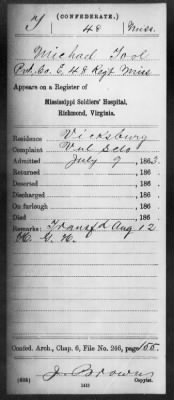 (CONFEDERATE.)
T 48 Miss.
Michael Tool
Pvt. Co. E, 48 Regt. Miss
Appears on a Register of
Mississippi Soldiers' Hospital,
Richmond, Virginia.
Residence Vicksburg
Complaint Vul Sclo
Admitted July 9, 1863.
Returned , 186
Deserted , 186
Discharged , 186
On furlough , 186
Died , 186
Remarks: Transfd Aug 12
G. H.
Confed. Arch., Chap. 6, File No. 246, page 155.
J. Brown
Copyist.